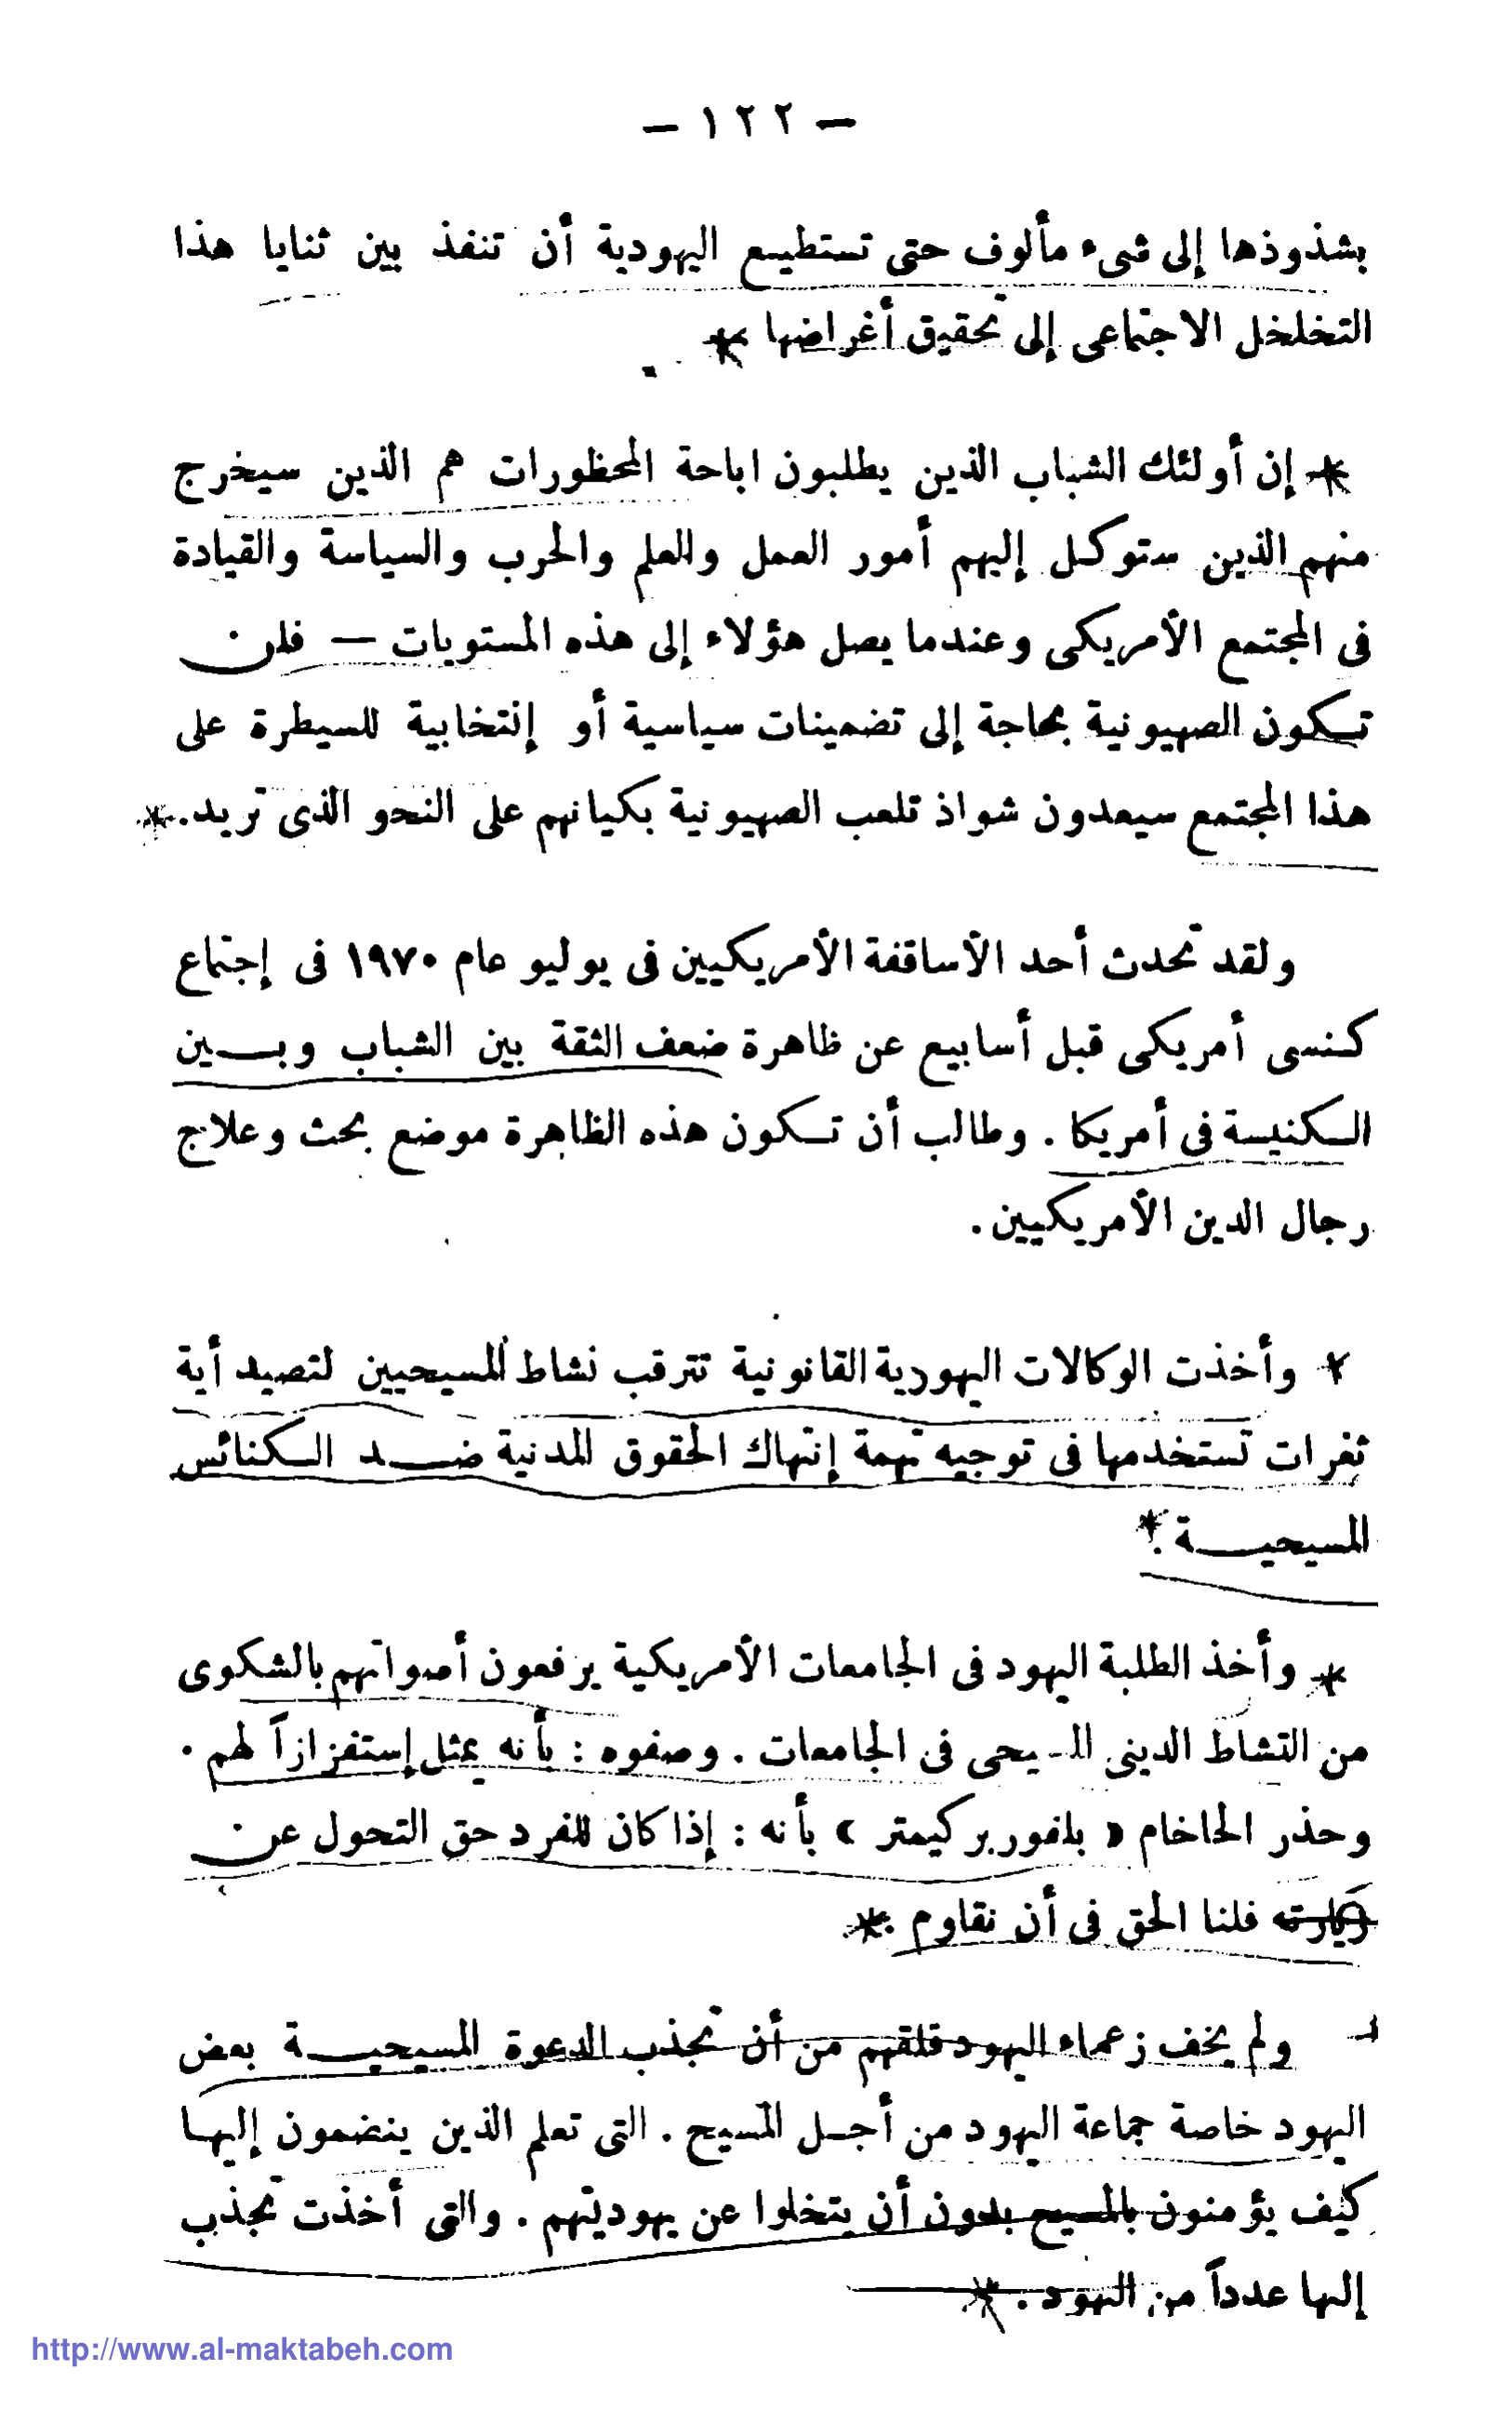 — ١٢٢ —
بشذوذها إلى شىء مألوف حتى تستطيع اليهودية أن تنفذ بين ثنايا هذا
التخلخل الاجتماعى إلى تحقيق أغراضها *
* إن أولئك الشباب الذين يطلبون اباحة المحظورات هم الذين سيخرج
منهم الذين ستوكل إليهم أمور العمل والعلم والحرب والسياسة والقيادة
فى المجتمع الأمريكى وعندما يصل هؤلاء إلى هذه المستويات — فلن
تكون الصهيونية بحاجة إلى تضمينات سياسية أو إنتخابية للسيطرة على
هذا المجتمع سيعدون شواذ تلعب الصهيونية بكيانهم على النحو الذى تريد. *
ولقد تحدث أحد الأساقفة الأمريكيين فى يوليو عام ١٩٧٠ فى إجتماع
كنسى أمريكى قبل أسابيع عن ظاهرة ضعف الثقة بين الشباب وبين
الكنيسة فى أمريكا . وطالب أن تكون هذه الظاهرة موضع بحث وعلاج
رجال الدين الأمريكيين .
* وأخذت الوكالات اليهودية القانونية تترقب نشاط المسيحيين لتصيد أية
ثغرات تستخدمها فى توجيه تهمة إنتهاك الحقوق المدنية ضد الكنائس
المسيحية . *
* وأخذ الطلبة اليهود فى الجامعات الأمريكية يرفعون أصواتهم بالشكوى
من النشاط الدينى المسيحى فى الجامعات . وصفوه : بأنه يمثل إستفزازاً لهم .
وحذر الحاخام « بلفور بركيمتر » بأنه : إذا كان للفرد حق التحول عن
فلنا الحق فى أن نقاوم . *
ولم يخف زعماء اليهود قلقهم من أن تجذب الدعوة المسيحية بعض
اليهود خاصة جماعة اليهود من أجل المسيح . التى تعلم الذين ينضمون إليها
كيف يؤمنون بالمسيح بدون أن يتخلوا عن يهوديتهم . والتى أخذت تجذب
إليها عدداً من اليهود . *
http://www.al-maktabeh.com